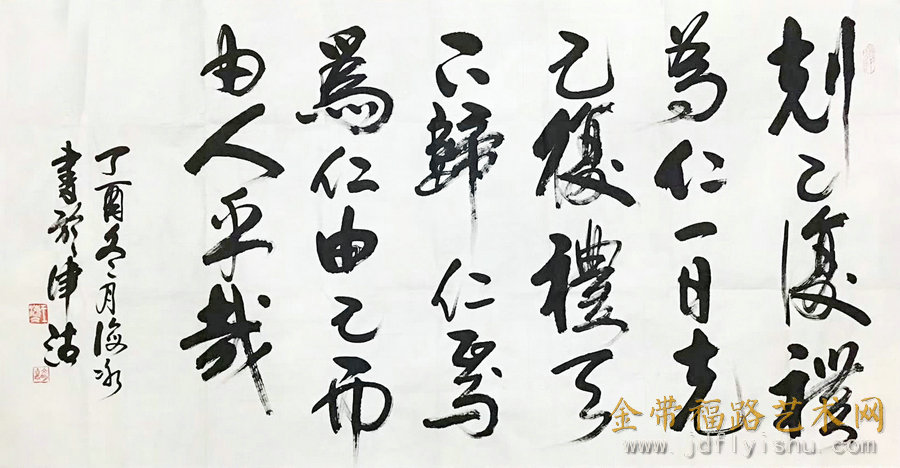 剋己復禮
為仁一日克
己復禮天
下歸仁焉
爲仁由己而
由人乎哉
丁酉冬月海冰
書於津沽
金带福路艺术网
www.jdflyishu.com